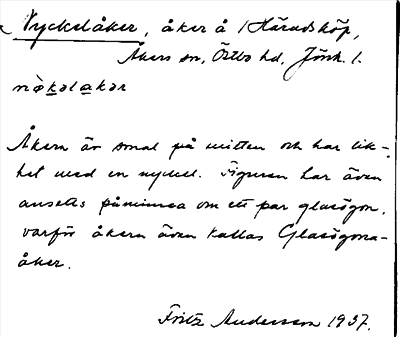 Nyckelåker, åker å Häradsköp,
Åkers sn, Östbo hd, Jönk. l.
Åkern är smal på mitten och har lik-
het med en nyckel. Figuren har även
ansetts påminna om ett par glasögon,
varför åkern även kallas Glasögona-
åker.
Fritz Andersson 1937.